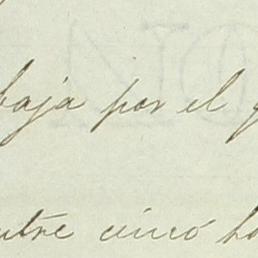 baja por el
entre cinco